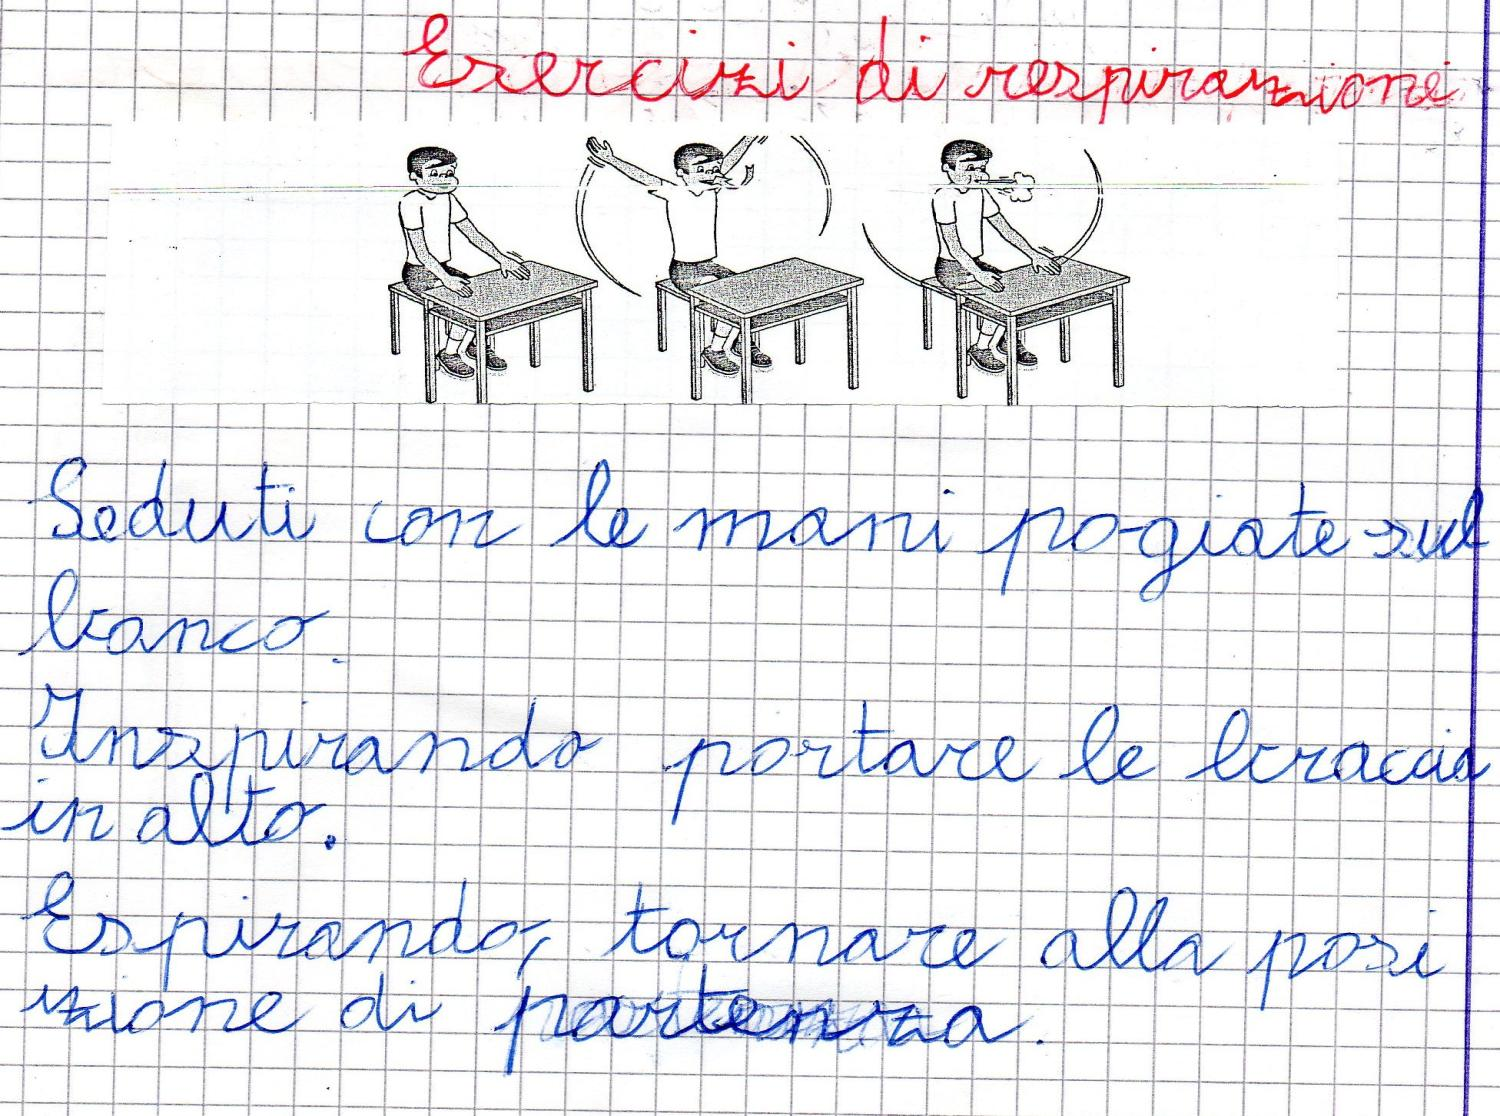 Esercizi di respirazione
Seduti con le mani pogiate sul
banco.
Inspirando portare le braccia
in alto.
Espirando, tornare alla posi
zione di partenza.